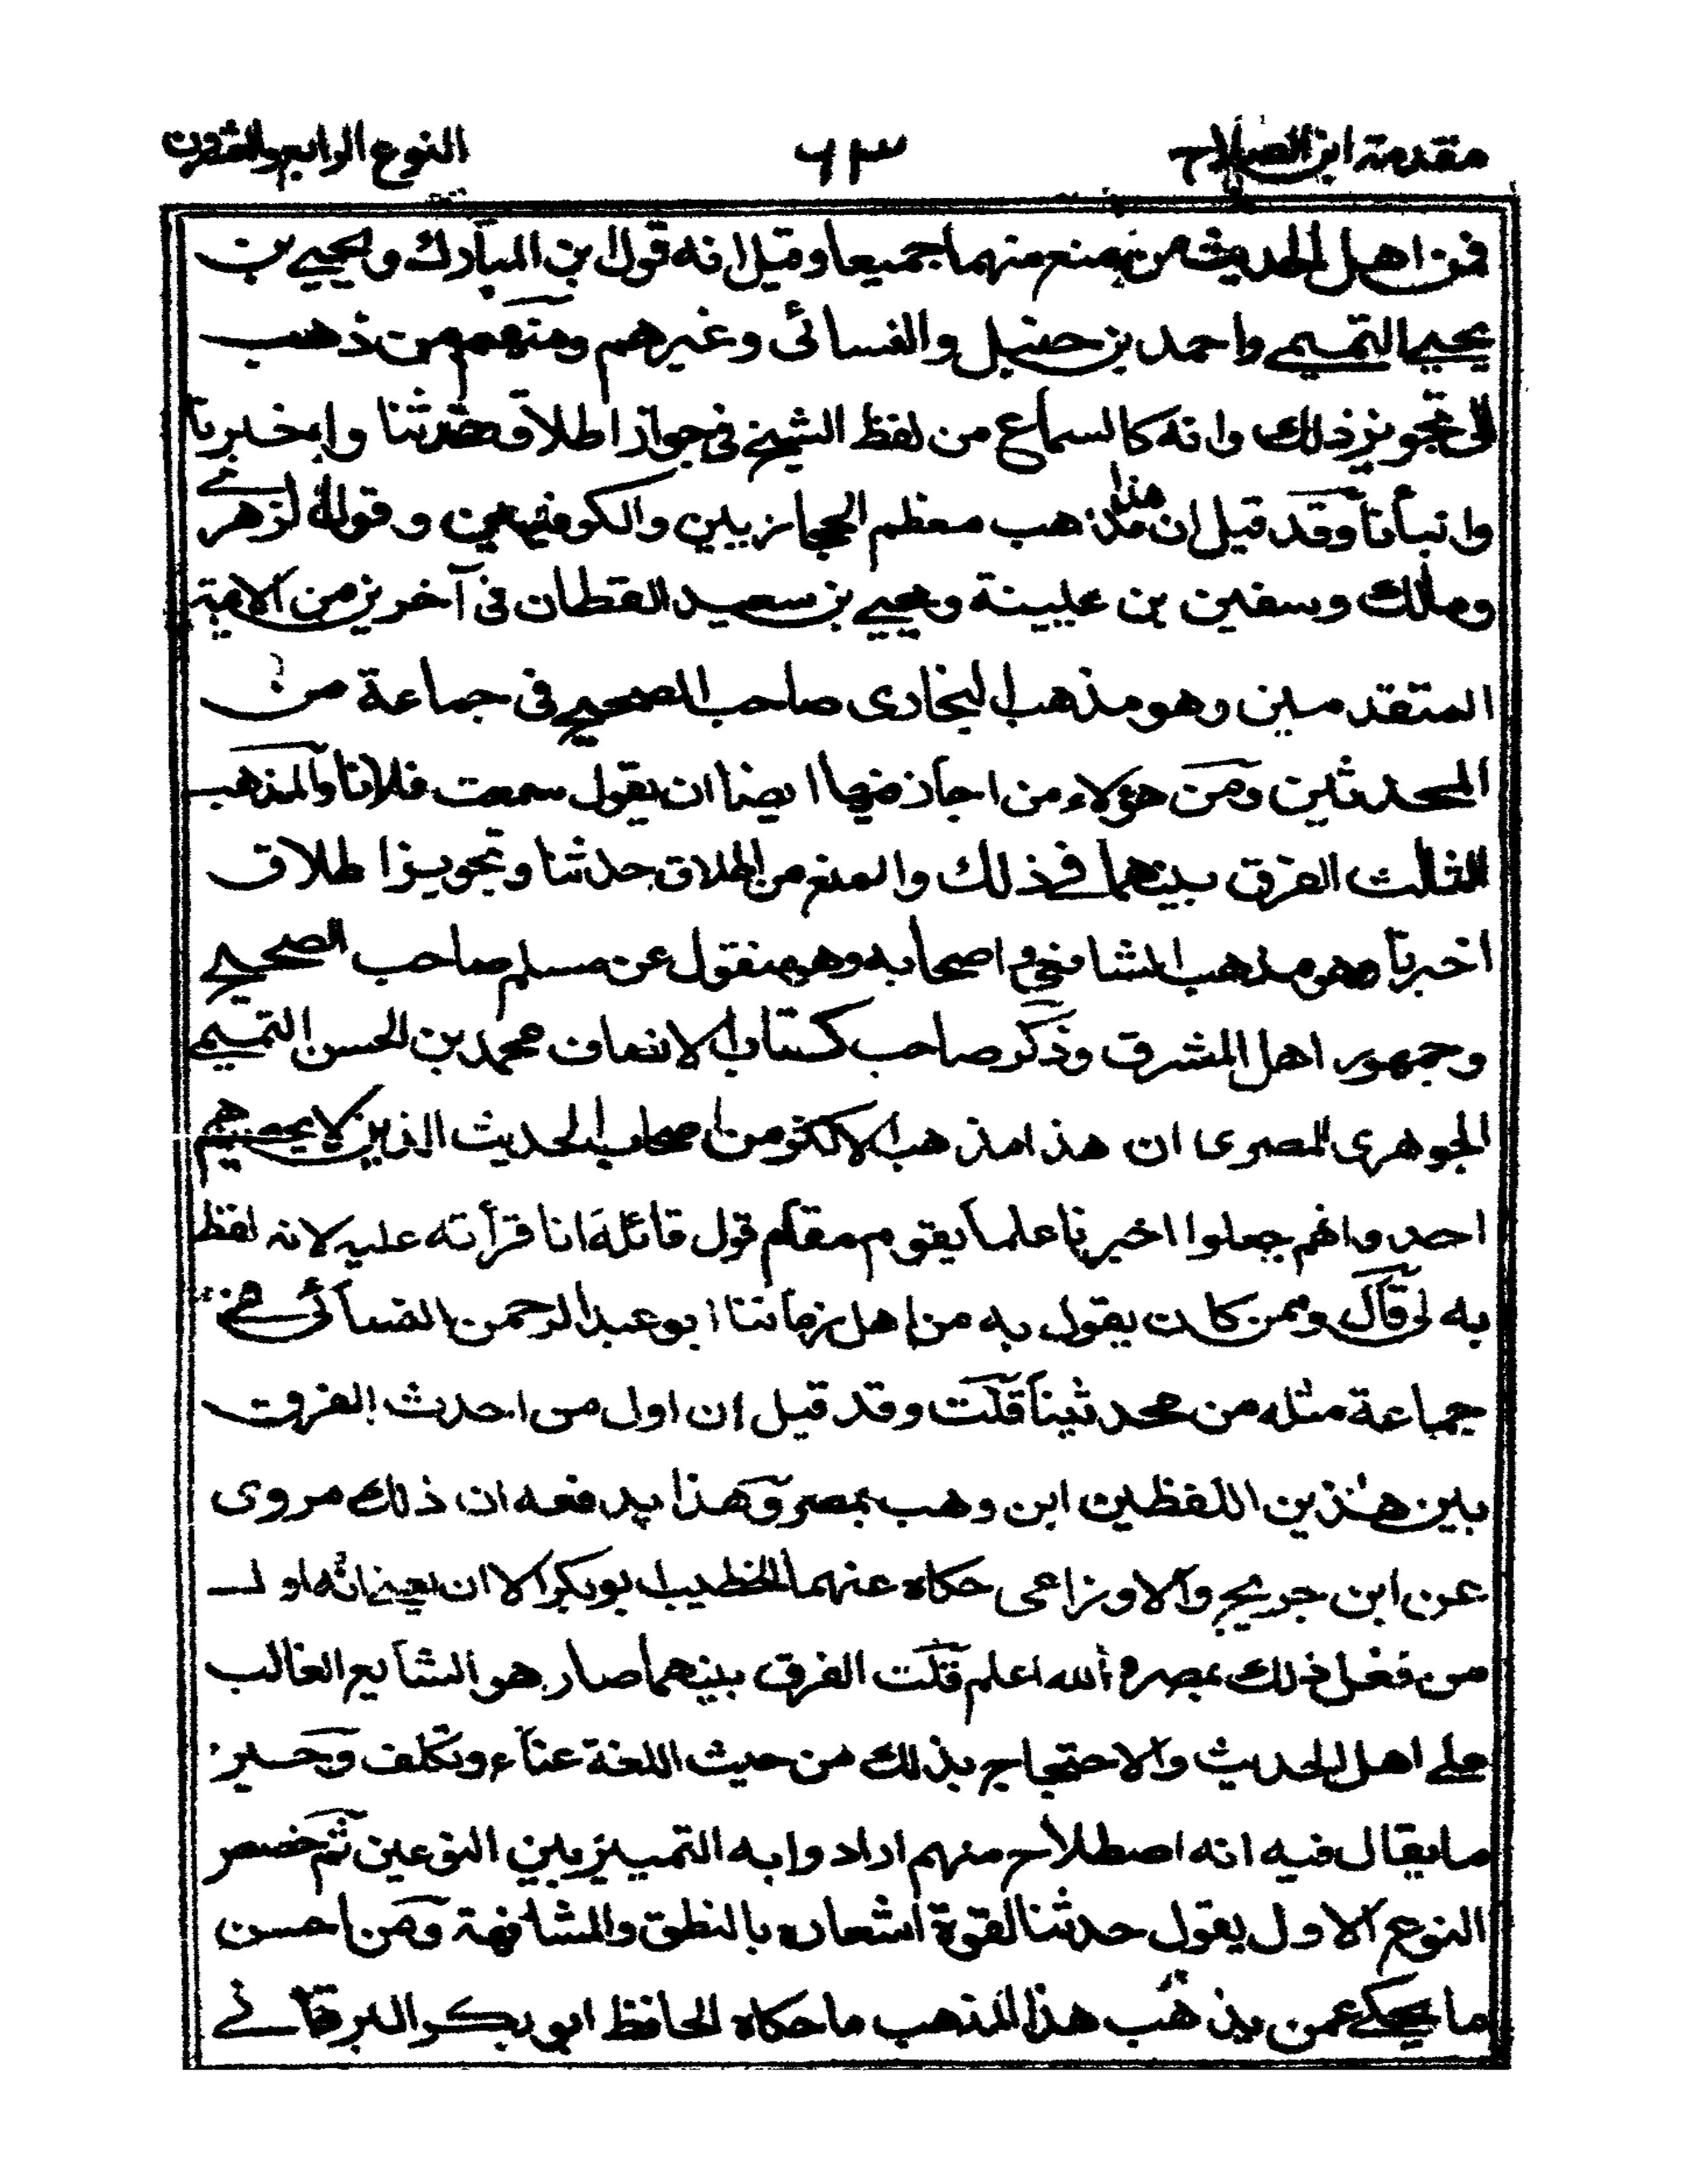 مقدمة ابن الصلاح ٦٣ النوع الرابع والعشرون
فمن اهل الحديث من يمنع منهما جميعا وقيل انه قول ابن المبارك ويحيى بن
يحيى التميمي واحمد بن حنبل والنسائى وغيرهم ومنهم من ذهب
الى تجويز ذلك وانه كالسماع من لفظ الشيخ فى جواز اطلاق حدثنا واخبرنا
وانبأنا وقد قيل ان هذا مذهب معظم الحجازيين والكوفيين وقول الزهرى
ومالك وسفين بن عيينة ويحيى بن سعيد القطان فى آخرين من الائمة
المتقدمين وهو مذهب البخارى صاحب الصحيح فى جماعة من
المحدثين ومن هؤلاء من اجاز فيها ايضا ان يقول سمعت فلانا والمذهب
الثالث الفرق بينهما فى ذلك والمنع من اطلاق حدثنا وتجويز اطلاق
اخبرنا وهو مذهب الشافعى واصحابه وهو منقول عن مسلم صاحب الصحيح
وجمهور اهل المشرق وذكر صاحب كتاب الانصاف محمد بن الحسن التميمي
الجوهرى المصرى ان هذا مذهب الاكثر من اصحاب الحديث الذين لا يحصيهم
احد وانهم جعلوا اخبرنا علما يقوم مقام قول قائله انا قرأته عليه لانه لفظ
به لى قال وممن كان يقول به من اهل زماننا ابو عبد الرحمن النسائى فى
جماعة مثله من محدثينا قلت وقد قيل ان اول من احدث الفرق
بين هذين اللفظين ابن وهب بمصر وهذا يدفعه ان ذلك مروى
عن ابن جريج والاوزاعى حكاه عنهما الخطيب ابو بكر الا ان يعنى انه اول
من فعل ذلك بمصر والله اعلم قلت الفرق بينهما صار هو الشايع الغالب
على اهل الحديث والاحتجاج بذلك من حيث اللغة عناء وتكلف وخير
ما يقال فيه انه اصطلاح منهم ارادوا به التمييز بين النوعين ثم خصص
النوع الاول بقول حدثنا لقوة اشعاره بالنطق والمشافهة ومن احسن
ما يحكى عمن يذهب هذا المذهب ما حكاه الحافظ ابو بكر البرقانى